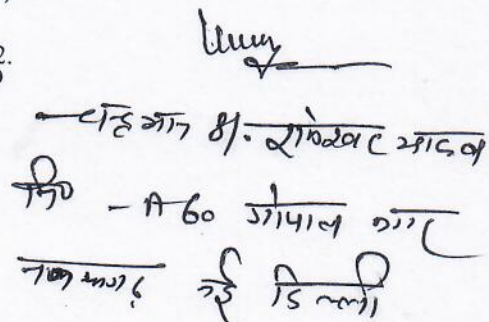 2.
चन्द्रभान S/o रामेश्वर यादव
नि० - A 60 गोपाल नगर
नजफगढ़ नई दिल्ली